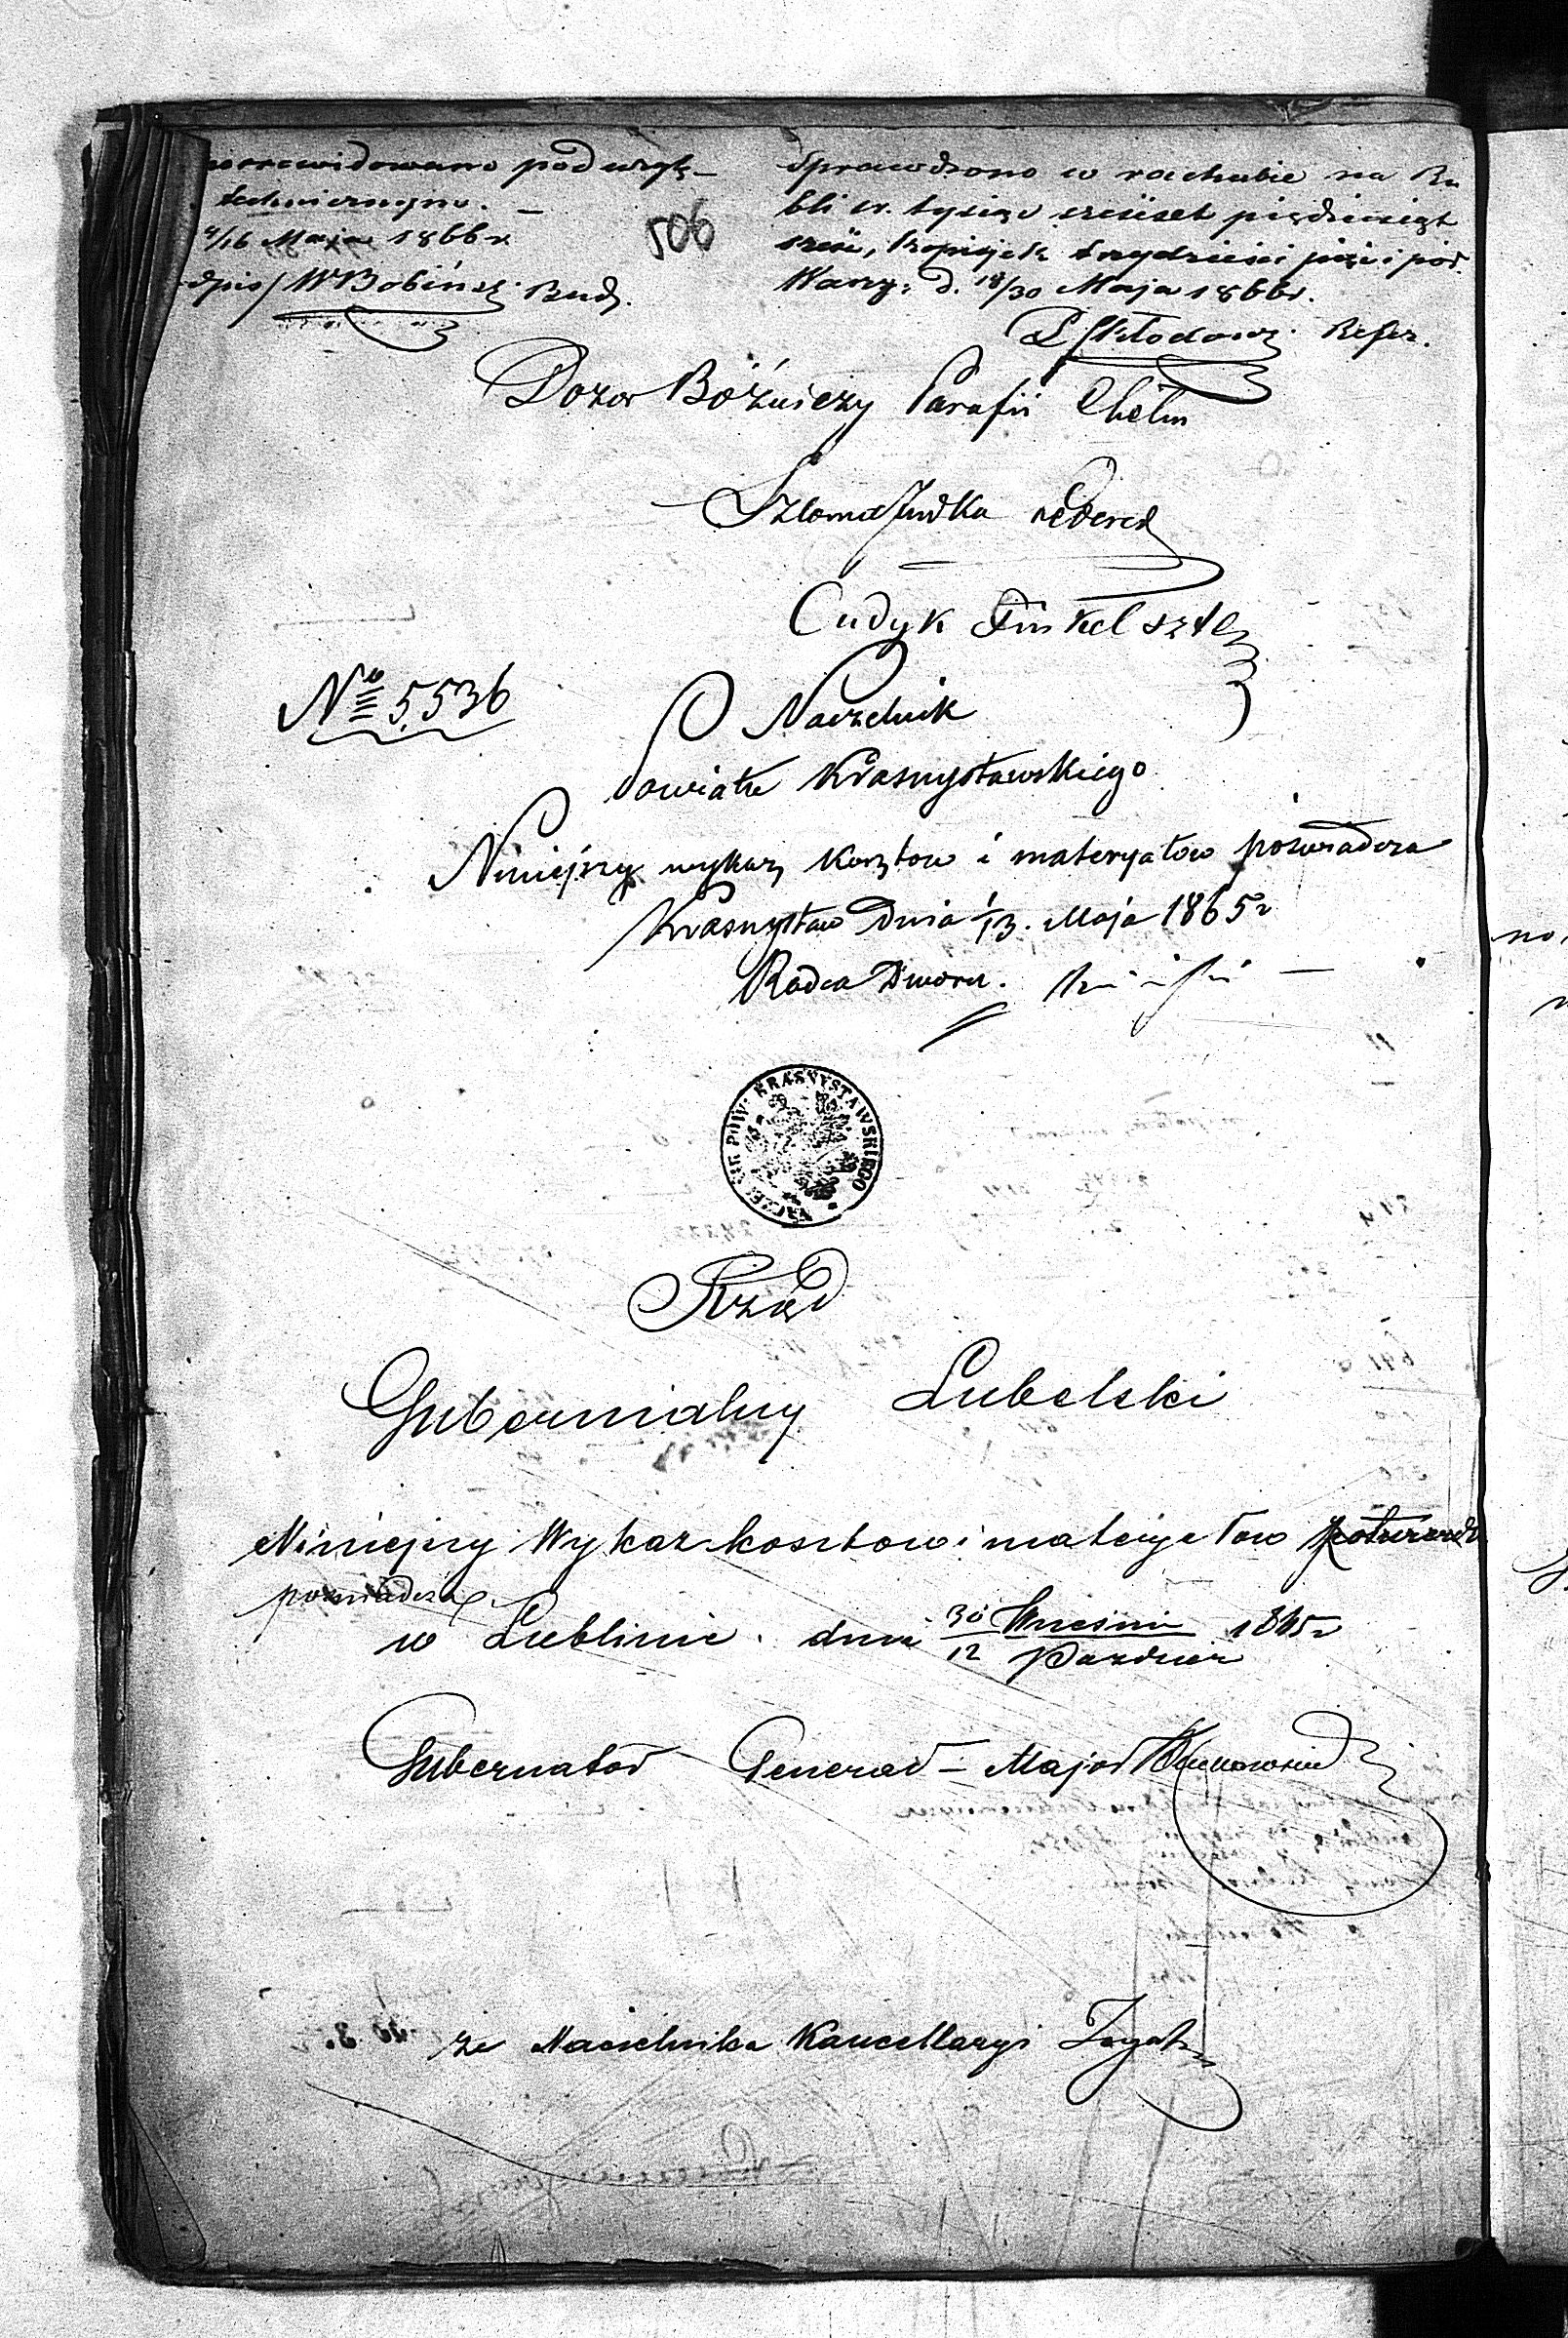 zrewidowano pod wzglę-
technicznym. —
4/16 Maja 1866 r
dpis/ WBobińsk Bud.
506
Sprawdzono w rachubie na Ru
bli sr. tysiąc sześset pięćdziesiąt
sześć, kopiejek trzydzieści pięć i pół.
Warsz: d. 18/30 Maja 1866 r.
Skłodows Refer.
Dozor Bóżniczy Parafii Chełm
Szloma Judka
Cudyk Finkelszte
No 5,536
Naczelnik
Powiatu Krasnystawskiego
Niniejszy wykaz kosztow i materyałów poświadcza
Krasnystaw Dnia 1/13. Maja 1865 r
Radca Dworu.
NACZELNIK POW: KRASNYSTAWSKIEGO
Rząd
Gubernialny Lubelski
Niniejszy Wykaz kosztow i materyałow potwierdz
poświadcza
w Lublinie. dnia 30 Wrześni / 12 Paździer 1865 r
Gubernator Generał-Major
za Naczelnika Kancellaryi